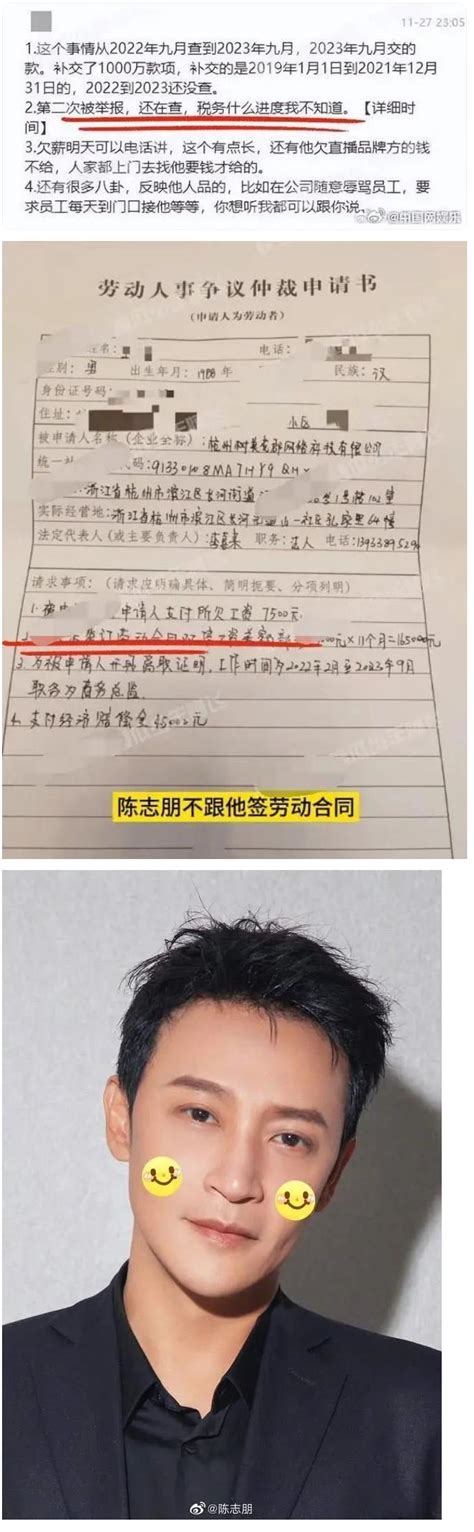 11-27 23:05
1.这个事情从2022年九月查到2023年九月，2023年九月交的
款。补交了1000万款项，补交的是2019年1月1日到2021年12月
31日的，2022到2023还没查。
2.第二次被举报，还在查，税务什么进度我不知道。【详细时
间】
3.欠薪明天可以电话讲，这个有点长，还有他欠直播品牌方的钱
不给，人家都上门去找他要钱才给的。
4.还有很多八卦，反映他人品的，比如在公司随意辱骂员工，要
求员工每天到门口接他等等，你想听我都可以跟你说。
@中国网娱乐
劳动人事争议仲裁申请书
（申请人为劳动者）
姓名： 电话：
性别：男 出生年月：1988年 民族：汉
身份证号码：
住址： 小区
被申请人名称（企业全称）：杭州 网络科技有限公司
统一社 代码：91330108MA7H
浙江省杭州市滨江区长河街道
实际经营地：浙江省杭州市滨江区长河街道 社区孔家里64幢
法定代表人（或主要负责人）： 职务： 电话：
请求事项：（请求应明确具体、简明扼要、分项列明）
申请人支付所欠工资7500元。
元×11个月=165000元
3.为被申请人开具离职证明，工作时间为2022年2月至2023年9月
职务为商务总监。
4.支付经济赔偿金45000元
陈志朋不跟他签劳动合同
@陈志朋